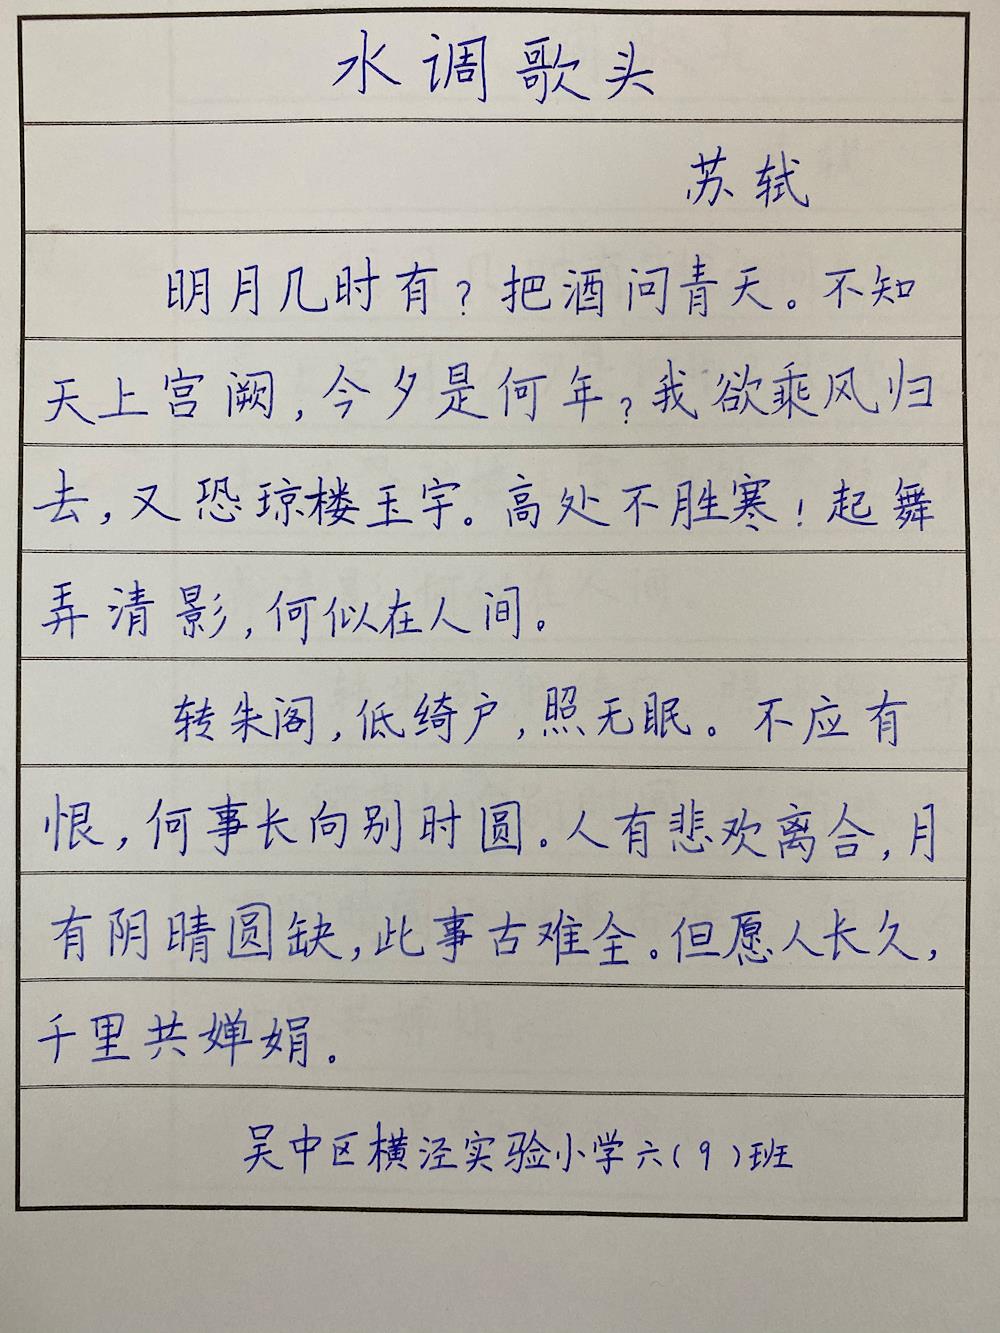 水调歌头
苏轼
明月几时有?把酒问青天。不知
天上宫阙,今夕是何年?我欲乘风归
去,又恐琼楼玉宇。高处不胜寒!起舞
弄清影,何似在人间。
转朱阁,低绮户,照无眠。不应有
恨,何事长向别时圆。人有悲欢离合,月
有阴晴圆缺,此事古难全。但愿人长久,
千里共婵娟。
吴中区横泾实验小学六(9)班